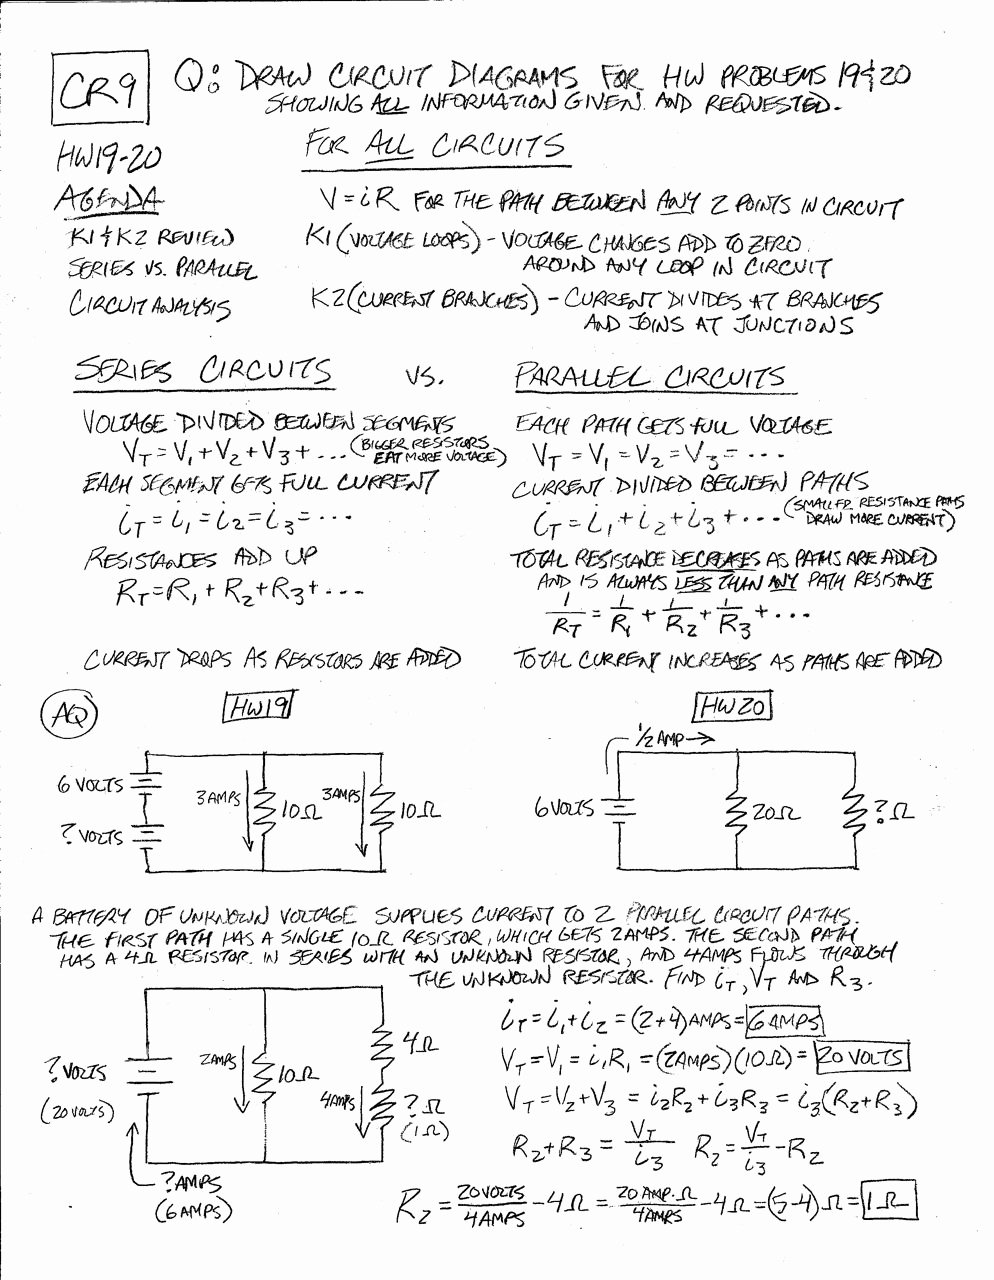 CR9
Q: DRAW CIRCUIT DIAGRAMS FOR HW PROBLEMS 19 & 20
SHOWING ALL INFORMATION GIVEN AND REQUESTED.
HW19-20
AGENDA
K1 & K2 REVIEW
SERIES VS. PARALLEL
CIRCUIT ANALYSIS
FOR ALL CIRCUITS
V = iR FOR THE PATH BETWEEN ANY 2 POINTS IN CIRCUIT
K1 (VOLTAGE LOOPS) - VOLTAGE CHANGES ADD TO ZERO
AROUND ANY LOOP IN CIRCUIT
K2 (CURRENT BRANCHES) - CURRENT DIVIDES AT BRANCHES
AND JOINS AT JUNCTIONS
SERIES CIRCUITS VS. PARALLEL CIRCUITS
VOLTAGE DIVIDED BETWEEN SEGMENTS
V_T = V_1 + V_2 + V_3 + ... (BIGGER RESISTORS
EAT MORE VOLTAGE)
EACH SEGMENT GETS FULL CURRENT
i_T = i_1 = i_2 = i_3 = ...
RESISTANCES ADD UP
R_T = R_1 + R_2 + R_3 + ...
CURRENT DROPS AS RESISTORS ARE ADDED
EACH PATH GETS FULL VOLTAGE
V_T = V_1 = V_2 = V_3 = ...
CURRENT DIVIDED BETWEEN PATHS
i_T = i_1 + i_2 + i_3 + ... (SMALLER RESISTANCE PATHS
DRAW MORE CURRENT)
TOTAL RESISTANCE DECREASES AS PATHS ARE ADDED
AND IS ALWAYS LESS THAN ANY PATH RESISTANCE
1/R_T = 1/R_1 + 1/R_2 + 1/R_3 + ...
TOTAL CURRENT INCREASES AS PATHS ARE ADDED
AQ
HW19
6 VOLTS
? VOLTS
3 AMPS
10Ω
3 AMPS
10Ω
HW20
1/2 AMP →
6 VOLTS
20Ω
? Ω
A BATTERY OF UNKNOWN VOLTAGE SUPPLIES CURRENT TO 2 PARALLEL CIRCUIT PATHS.
THE FIRST PATH HAS A SINGLE 10Ω RESISTOR, WHICH GETS 2AMPS. THE SECOND PATH
HAS A 4Ω RESISTOR IN SERIES WITH AN UNKNOWN RESISTOR, AND 4AMPS FLOWS THROUGH
THE UNKNOWN RESISTOR. FIND i_T, V_T AND R_3.
? VOLTS
(20 VOLTS)
2AMPS
10Ω
4Ω
4AMPS
? Ω
(1Ω)
? AMPS
(6 AMPS)
i_T = i_1 + i_2 = (2+4)AMPS = 6 AMPS
V_T = V_1 = i_1R_1 = (2AMPS)(10Ω) = 20 VOLTS
V_T = V_2 + V_3 = i_2R_2 + i_3R_3 = i_3(R_2 + R_3)
R_2 + R_3 = V_T/i_3 R_2 = V_T/i_3 - R_2
R_2 = 20 VOLTS/4 AMPS - 4Ω = 20 AMP·Ω/4 AMPS - 4Ω = (5-4)Ω = 1Ω